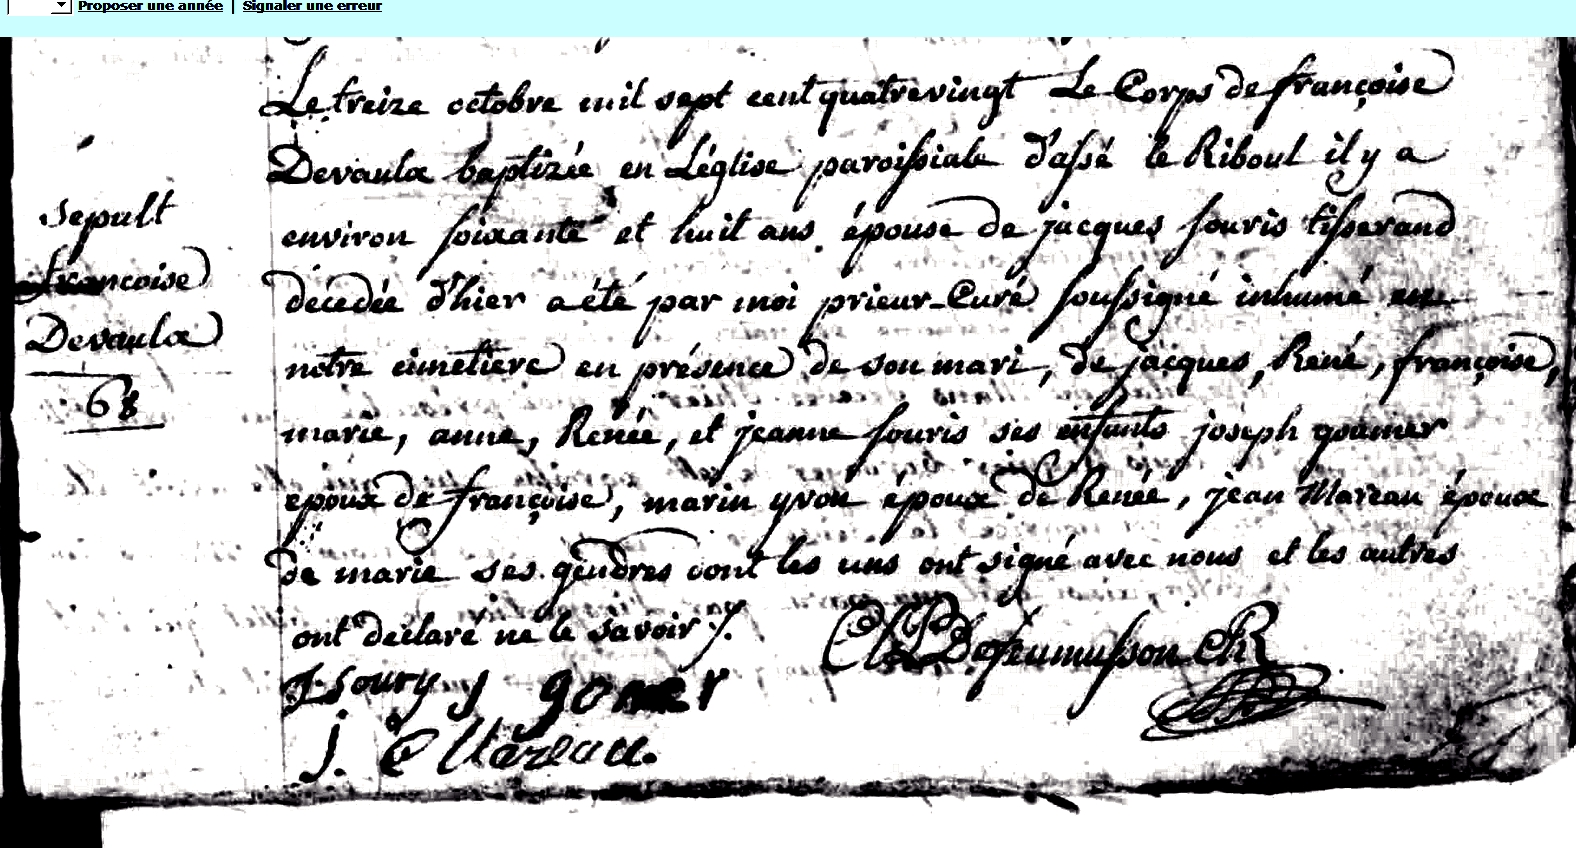 Proposer une année | Signaler une erreur
Le treize octobre mil sept cent quatrevingt Le Corps de françoise
Devaulx baptizée en L'église paroissiale d'assé le Riboul il y a
environ soixante et huit ans épouse de jacques souris tisserand
décedée d'hier a été par moi prieur-Curé soussigné inhumé en
notre cimetiere en présence de son mari, de jacques, René, françoise,
marie, anne, Renée, et jeanne souris ses enfants joseph
epoux de françoise, marin yvon époux de Renée, jean Mareau époux
de marie ses gendres dont les uns ont signé avec nous et les autres
ont declaré ne le savoir ./.
sepult
françoise
Devaulx
68
J Soury J goner
J. Mareau.